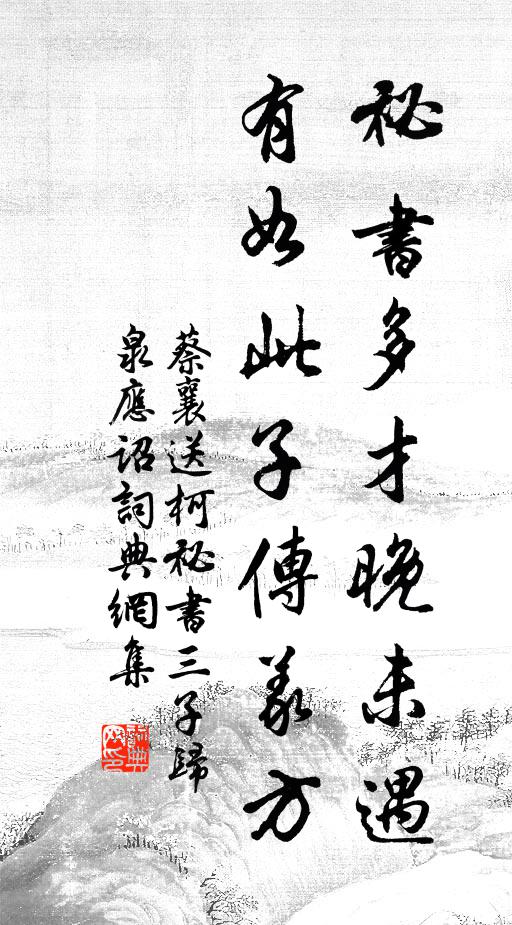 秘書多才晚未遇
有如此子傳義方
蔡襄送柯秘書三子歸
泉應詔詞典網集